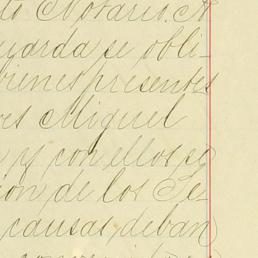 to Notario. A
guarda se obli-
bienes presentes
es Miguel
y con ellos se
ion de los Se-
causas deban